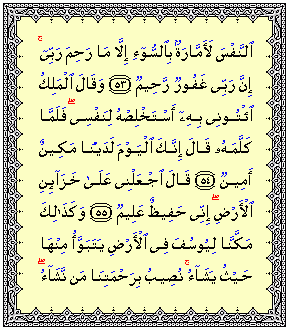 ٱلنَّفْسَ لَأَمَّارَةُۢ بِٱلسُّوٓءِ إِلَّا مَا رَحِمَ رَبِّىٓ ۚ
إِنَّ رَبِّى غَفُورٌ رَّحِيمٌ ﴿٥٣﴾ وَقَالَ ٱلْمَلِكُ
ٱئْتُونِى بِهِۦٓ أَسْتَخْلِصْهُ لِنَفْسِى ۖ فَلَمَّا
كَلَّمَهُۥ قَالَ إِنَّكَ ٱلْيَوْمَ لَدَيْنَا مَكِينٌ
أَمِينٌ ﴿٥٤﴾ قَالَ ٱجْعَلْنِى عَلَىٰ خَزَآئِنِ
ٱلْأَرْضِ ۖ إِنِّى حَفِيظٌ عَلِيمٌ ﴿٥٥﴾ وَكَذَٰلِكَ
مَكَّنَّا لِيُوسُفَ فِى ٱلْأَرْضِ يَتَبَوَّأُ مِنْهَا
حَيْثُ يَشَآءُ ۚ نُصِيبُ بِرَحْمَتِنَا مَن نَّشَآءُ ۖ